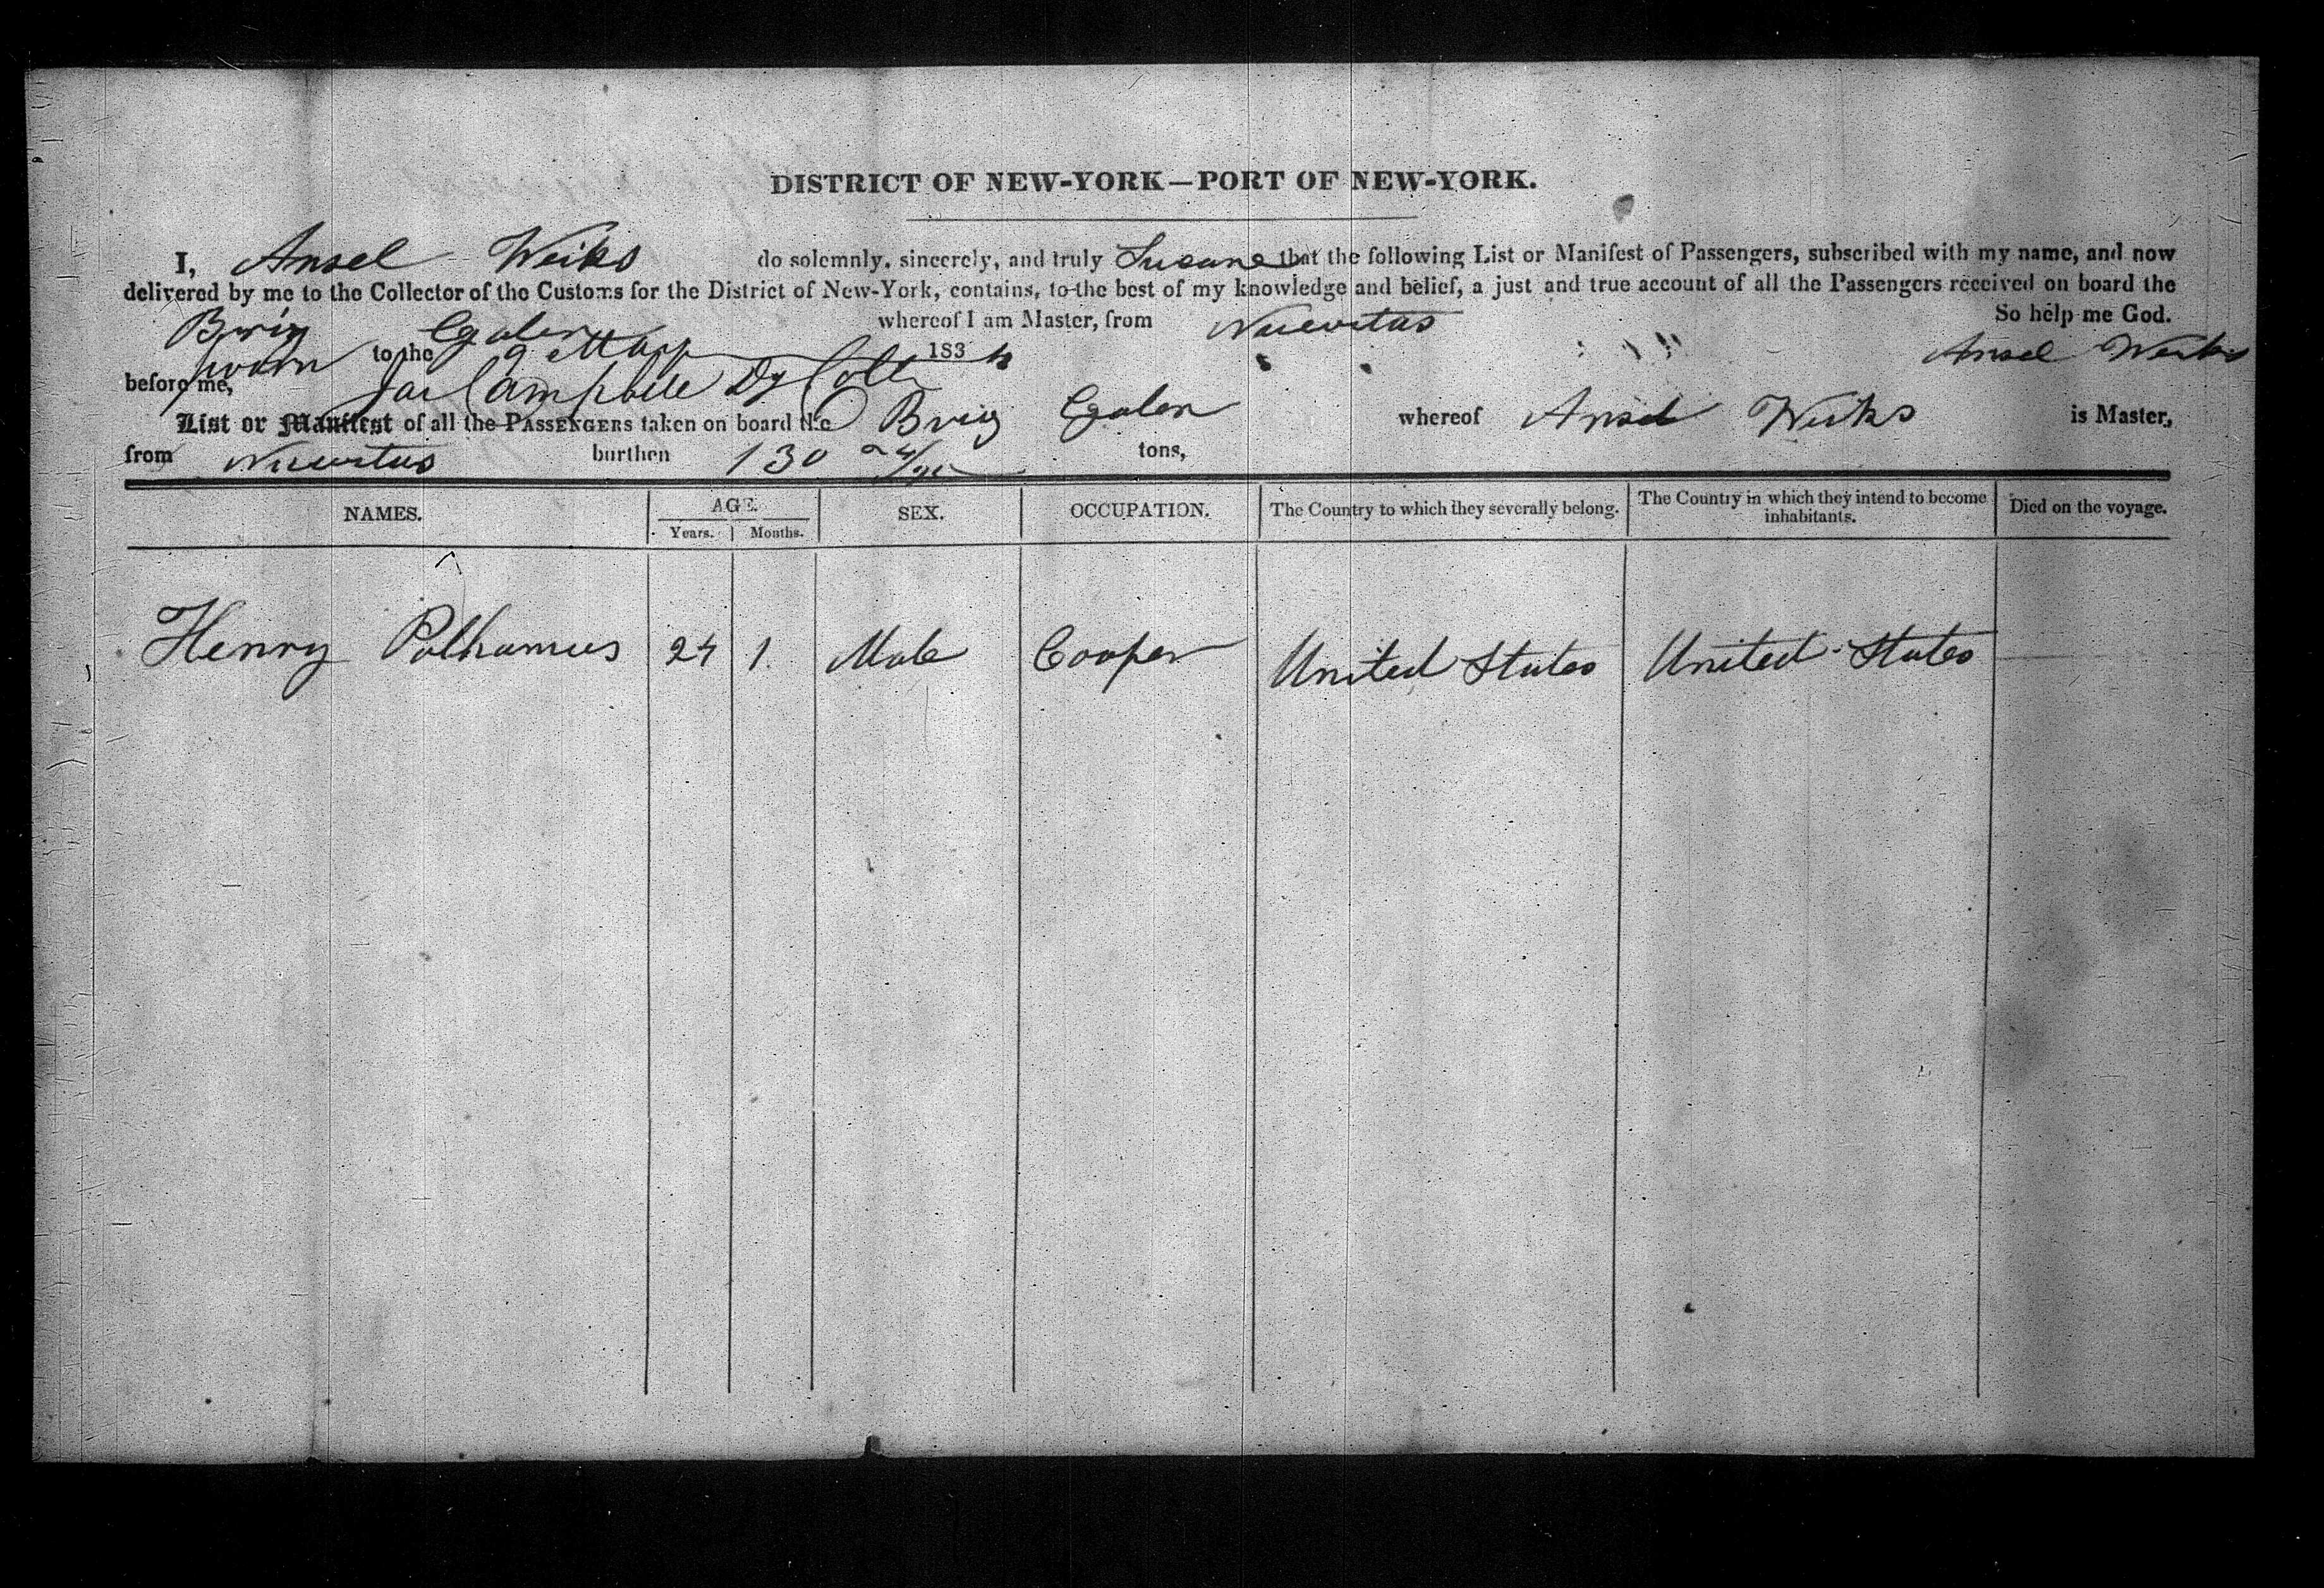 DISTRICT OF NEW-YORK—PORT OF NEW-YORK.
I, Ansel Weiks do solemnly, sincerely, and truly Sweare that the following List or Manifest of Passengers, subscribed with my name, and now
delivered by me to the Collector of the Customs for the District of New-York, contains, to the best of my knowledge and belief, a just and true account of all the Passengers received on board the
Brig whereof I am Master, from Nuevitas So help me God.
sworn to the 9 183 Ansel Weiks
before me, Jas Campbell Dy Coll
List or Manifest of all the PASSENGERS taken on board the Brig whereof Ansel Weiks is Master,
from Nuevitas burthen 130 tons,
NAMES. AGE. SEX. OCCUPATION. The Country to which they severally belong. The Country in which they intend to become inhabitants. Died on the voyage.
Years. Months.
Henry Polhamus 24 1. Male Cooper United States United States